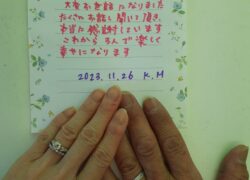 大変お世話になりました
たくさんお話し聞いて頂き、
本当に感謝しています
これから3人で楽しく
幸せになります
2023.11.26 K.M